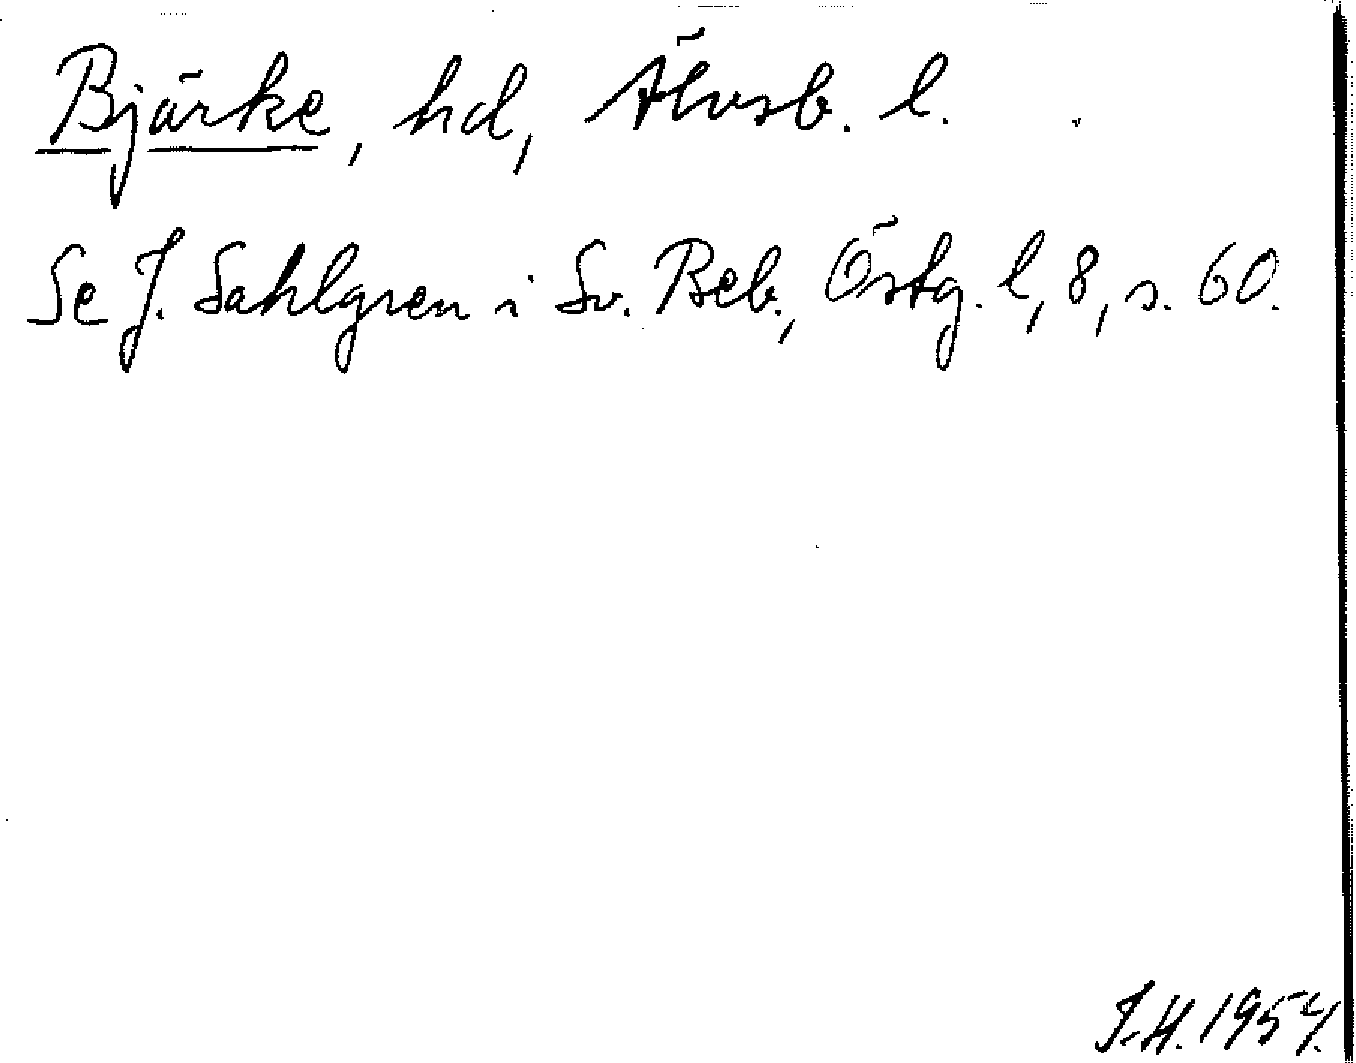 Bjärke, hd, Älvsb. l.
Se J. Sahlgren i Sv. Beb., Östg. l, 8, s. 60.
I.H. 1954.